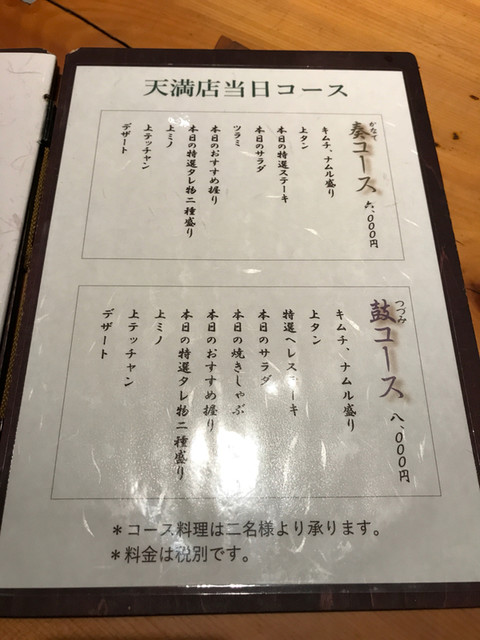 天満店当日コース
かなで
奏コース 六、000円
キムチ、ナムル盛り
上タン
本日の特選ステーキ
本日のサラダ
ツラミ
本日のおすすめ握り
本日の特選タレ物二種盛り
上ミノ
上テッチャン
デザート
つづみ
鼓コース 八、000円
キムチ、ナムル盛り
上タン
特選ヘレステーキ
本日のサラダ
本日の焼きしゃぶ
本日のおすすめ握り
本日の特選タレ物二種盛り
上ミノ
上テッチャン
デザート
＊コース料理は二名様より承ります。
＊料金は税別です。